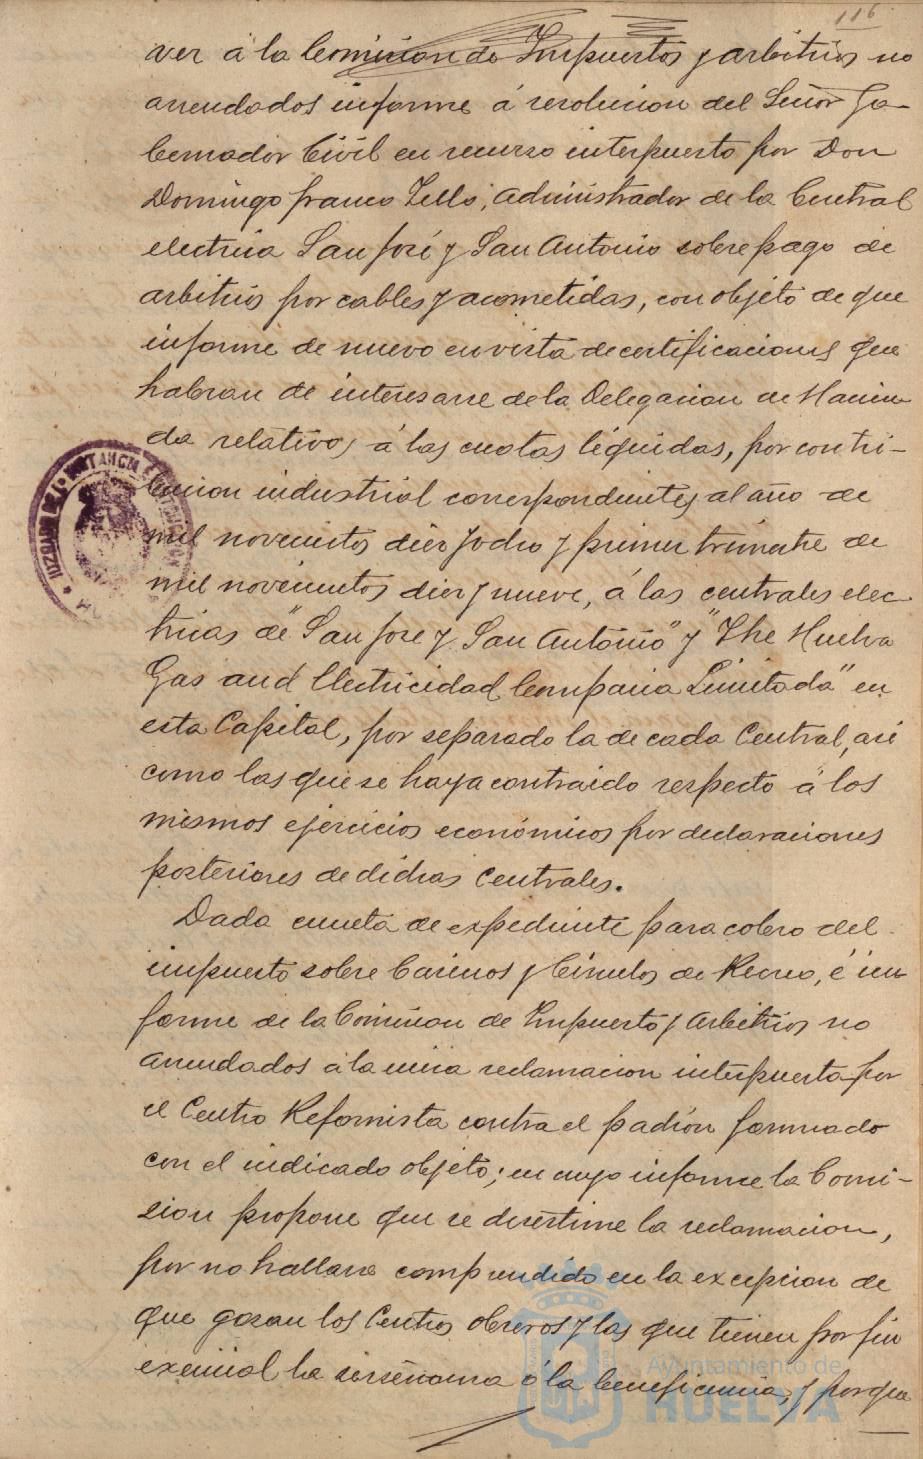 116
ver á la Comision de Impuestos y arbitrios no
arrendados informe á resolucion del Señor Go-
bernador Civil en recurso interpuesto por Don
Domingo franco Tello, administrador de la Central
electrica San José y San Antonio sobre pago de
arbitrios por cables y acometidas, con objeto de que
informe de nuevo en vista de certificaciones que
habran de interesarse de la Delegacion de Hacien-
da relativos á las cuotas liquidas, por contri-
bucion industrial correspondientes al año de
mil novecientos diez y ocho y primer trimestre de
mil novecientos diez y nueve, á las centrales elec-
tricas de "San Jose y San Antonio" y "The Huelva
Gas and Electricidad Compania Limitada" en
esta Capital, por separado la de cada Central, asi
como las que se haya contraido respecto á los
mismos ejercicios económicos por declaraciones
posteriores de dichas Centrales.
Dada cuenta de expediente para cobro del
impuesto sobre Casinos y Circulos de Recreo, é in-
forme de la Comision de Impuestos y Arbitrios no
arrendados á la unica reclamacion interpuesta por
el Centro Reformista contra el padrón formado
con el indicado objeto; en cuyo informe la Comi-
sion propone que se desestime la reclamacion,
por no hallarse comprendido en la excepcion de
que gozan los Centros obreros y las que tienen por fin
exencial la enseñanza ó la beneficencia, y porque
JUZGADO DE 1ª INSTANCIA É INSTRUCCION
Ayuntamiento de
HUELVA